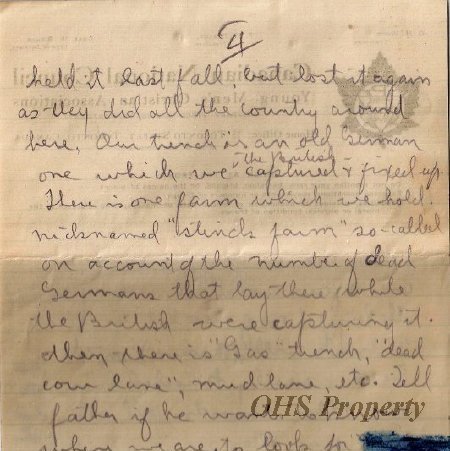 4
held it last fall, but lost it again
as they did all the country around
here. Our trench is an old German
the British
one which we captured & fixed up.
There is one farm which we hold
nicknamed "stinck farm" so-called
on account of the number of dead
Germans that lay there while
the British were capturing it.
then there is "Gas" trench, "dead
cow lane", mud lane, etc. Tell
father if he wants to
where we are to look for
OHS Property
Canadian National Council
Young Men's Christian Associations